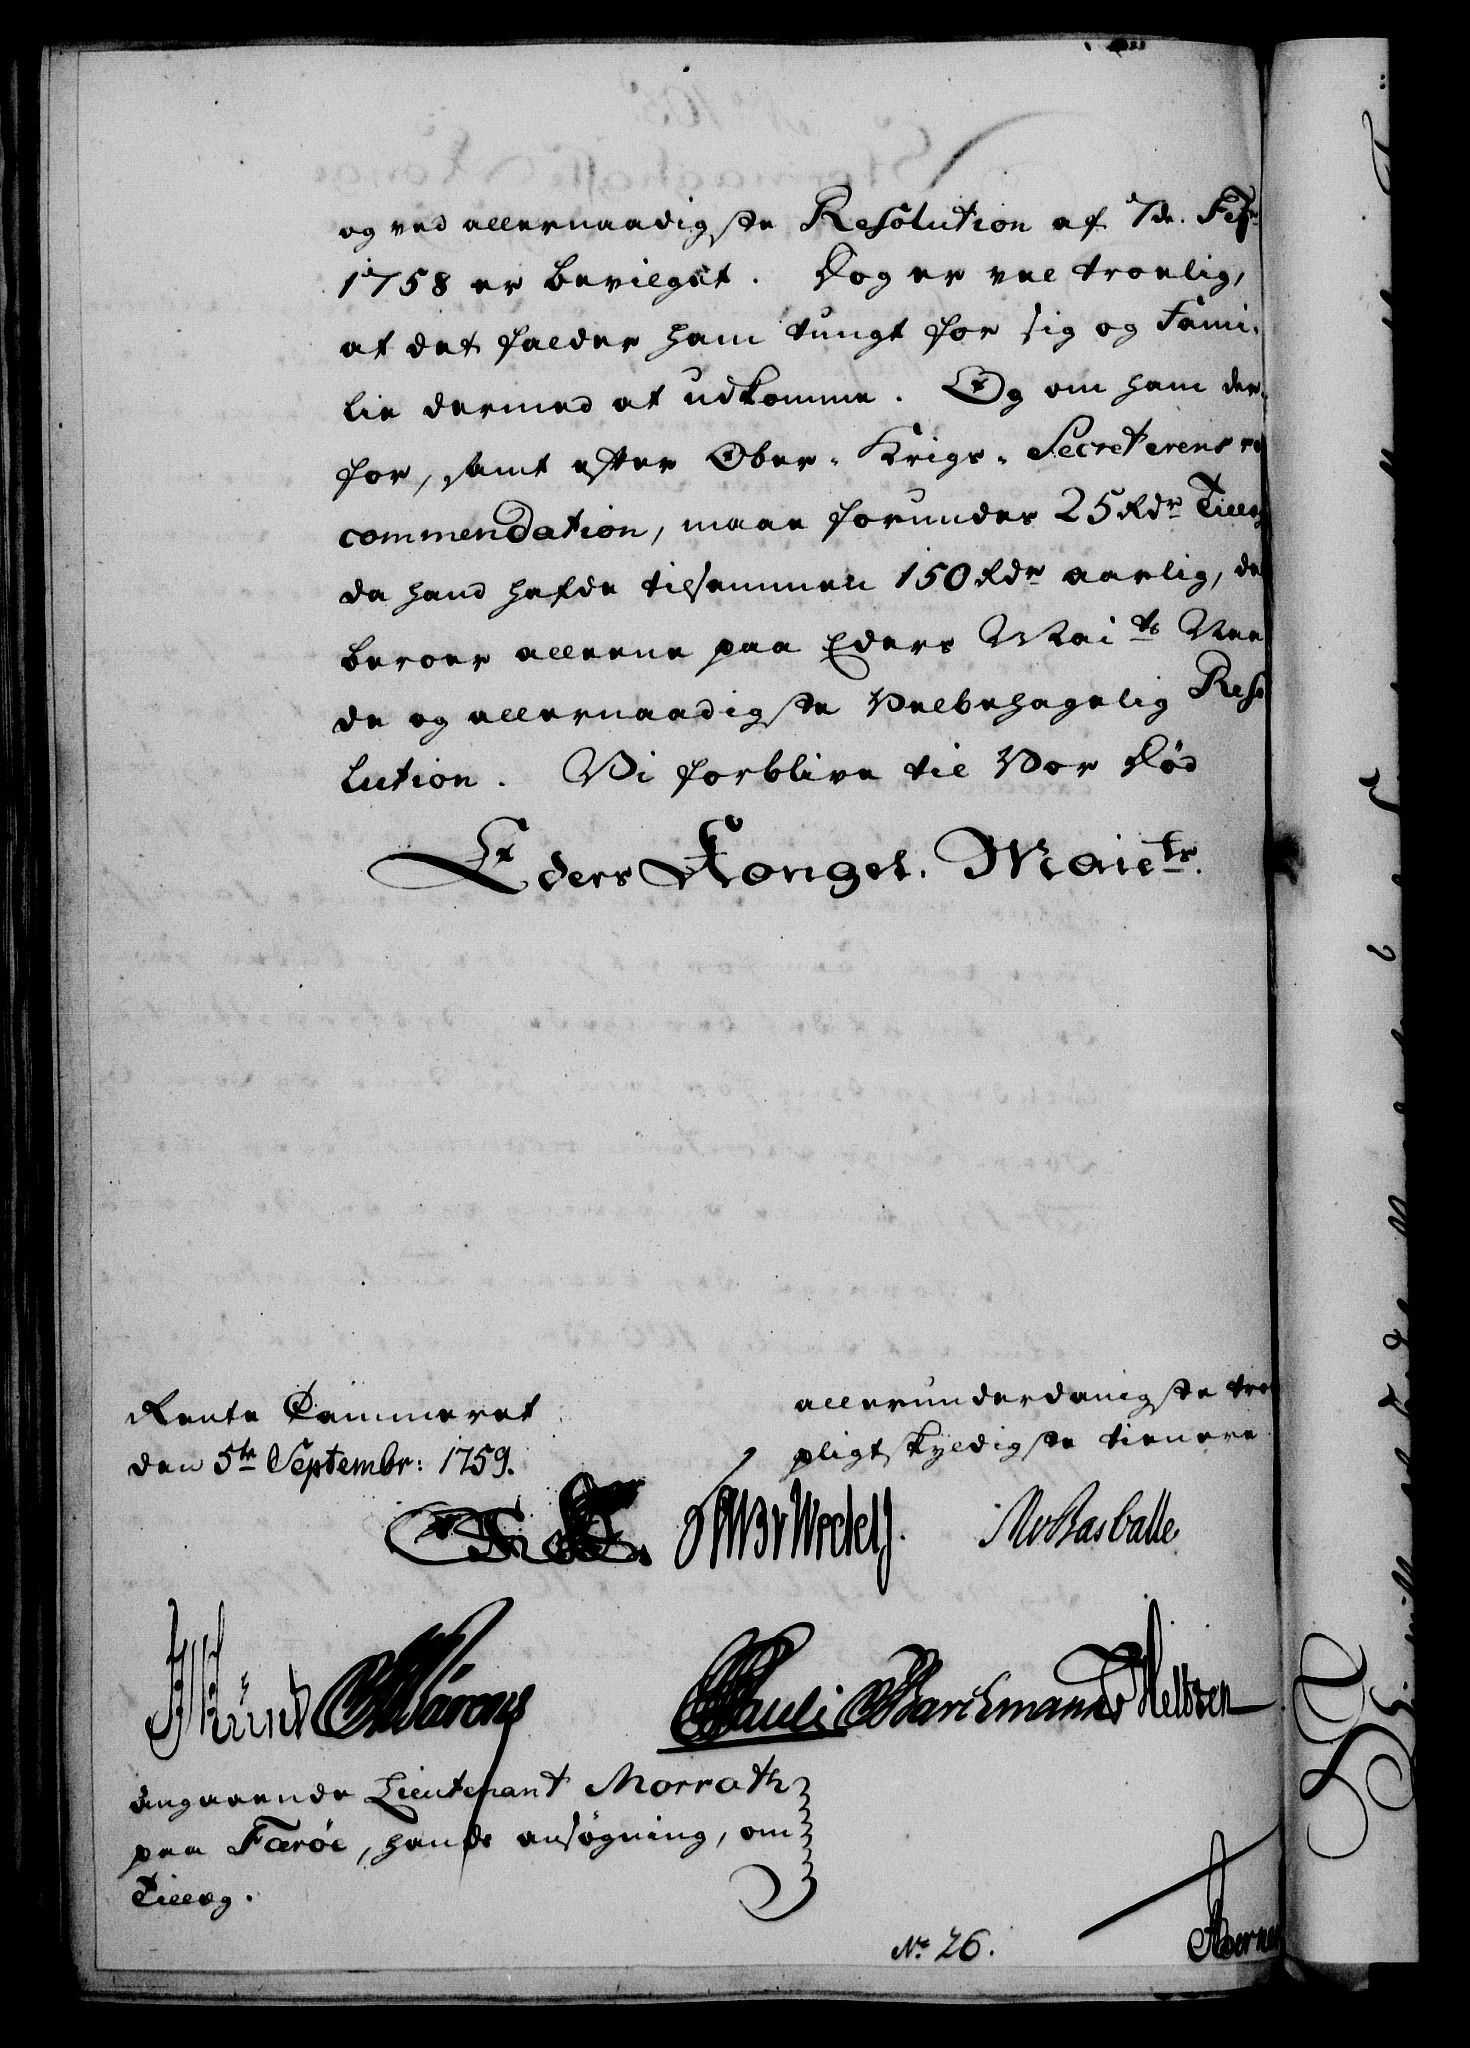 og ved allernaadigste Resolution af 7de. Febr
1758 er bevilget. Dog er vel troelig,
at det falder ham tungt for sig og Fami-
lie dermed at udkomme. Og om ham der-
for, samt efter Ober-Krigs-Secreterens re
commendation, maae forundes 25 Rdr Tillæg
da hand hafde tilsammen 150 Rdr aarlig, de
beroer alleene paa Eders Mai ts Naa
de og allernaadigste Velbehagelig Reso
lution. Vi forblive til Vor Død
Eders Kongel. Maiets.
Rente Cammeret
den 5te Septembr: 1759.
allerunderdanigste troe
pligtskyldigste tienere
Pauli Barchmann Heltzen
angaaende Lieutenant Morrath
paa Færöe, hands ansögning, om
Tillæg.
No 26.